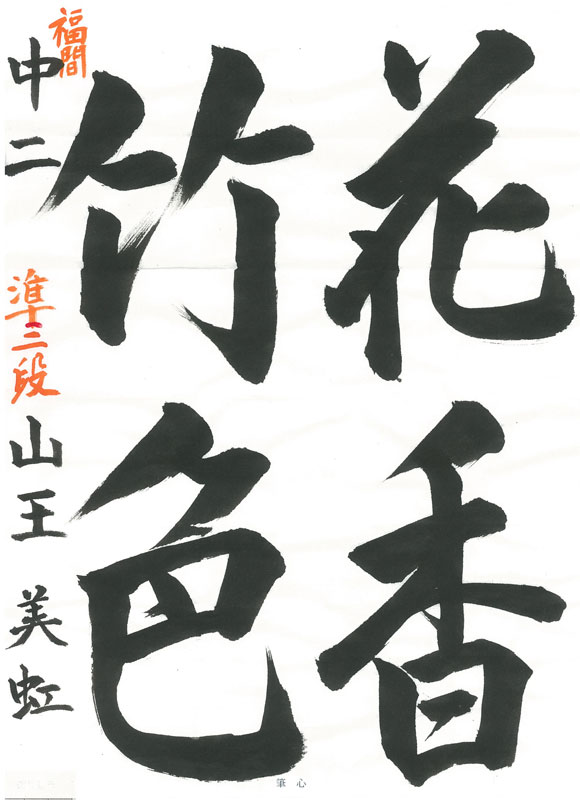 花香
竹色
福間
中二 準三段 山王 美虹
筆心